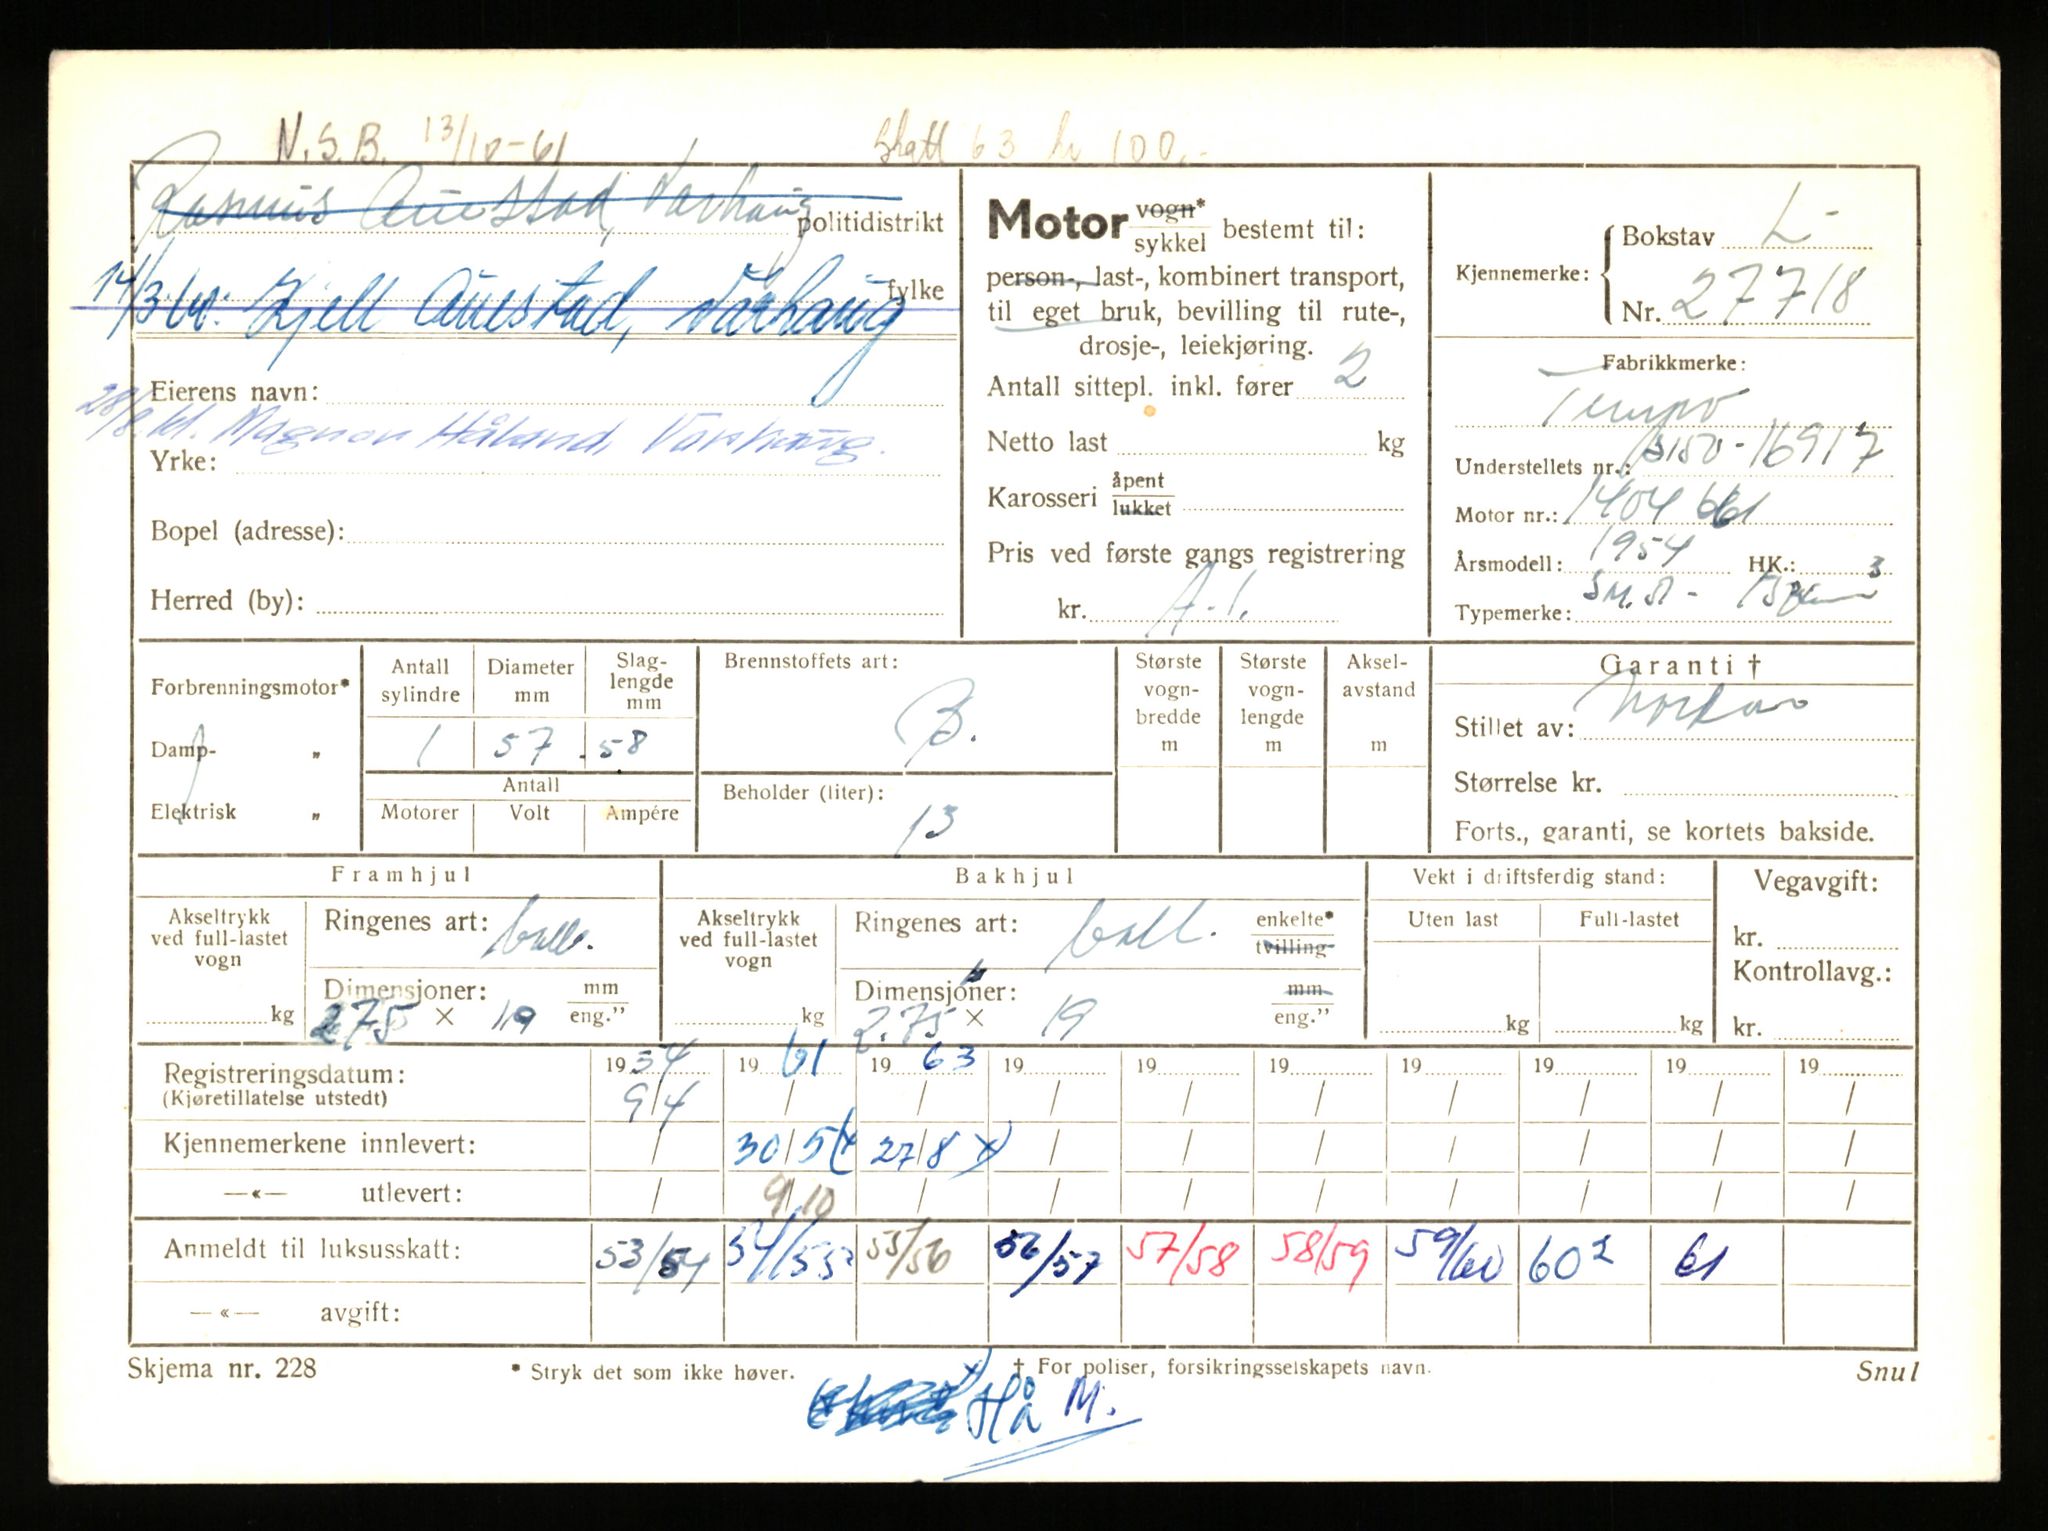 N.S.B. 13/10-61
Skatt 63 kr 100,-
Rasmus Auestad, Varhaug
politidistrikt
14/3.60. Kjell Auestad, Varhaug
fylke
Eierens navn:
28/8.61. Magnor Håland, Varhaug.
Yrke:
Bopel (adresse):
Herred (by):
Motor vogn* sykkel bestemt til:
person-, last-, kombinert transport,
til eget bruk, bevilling til rute-,
drosje-, leiekjøring.
Antall sittepl. inkl. fører 2
Netto last kg
Karosseri åpent lukket
Pris ved første gangs registrering
kr. A.I.
Kjennemerke:
Bokstav L-
Nr. 27718
Fabrikkmerke:
Tempo
Understellets nr.: B150-16917
Motor nr.: 1404661
Årsmodell: 1954 HK.: 3
Typemerke:
Forbrenningsmotor*
Damp- „
Elektrisk „
Antall sylindre
Diameter mm
Slag-lengde mm
1 57 . 58
Antall
Motorer Volt Ampére
Brennstoffets art:
B.
Beholder (liter):
13
Største vogn-bredde m
Største vogn-lengde m
Aksel-avstand m
Garanti †
Stillet av:
Størrelse kr.
Forts., garanti, se kortets bakside.
Framhjul
Akseltrykk ved full-lastet vogn
kg
Ringenes art: ball.
Dimensjoner: mm eng.”
2.75 × 19
Bakhjul
Akseltrykk ved full-lastet vogn
kg
Ringenes art: ball. enkelte* tvilling
Dimensjoner: mm eng.”
2.75 × 19
Vekt i driftsferdig stand:
Uten last Full-lastet
kg kg
Vegavgift:
kr.
Kontrollavg.:
kr.
Registreringsdatum: 1954 1961 1963 19 19 19 19 19 19 19
(Kjøretillatelse utstedt) 9/4 / / / / / / / / /
Kjennemerkene innlevert: / 30/5 (x 27/8 x) / / / / / / /
—«— utlevert: / 9/10 / / / / / / / /
Anmeldt til luksusskatt: 53/54 54/55² 55/56 56/57 57/58 58/59 59/60 60² 61
—«— avgift:
Skjema nr. 228
* Stryk det som ikke høver.
† For poliser, forsikringsselskapets navn.
Snul
x) Hå M.